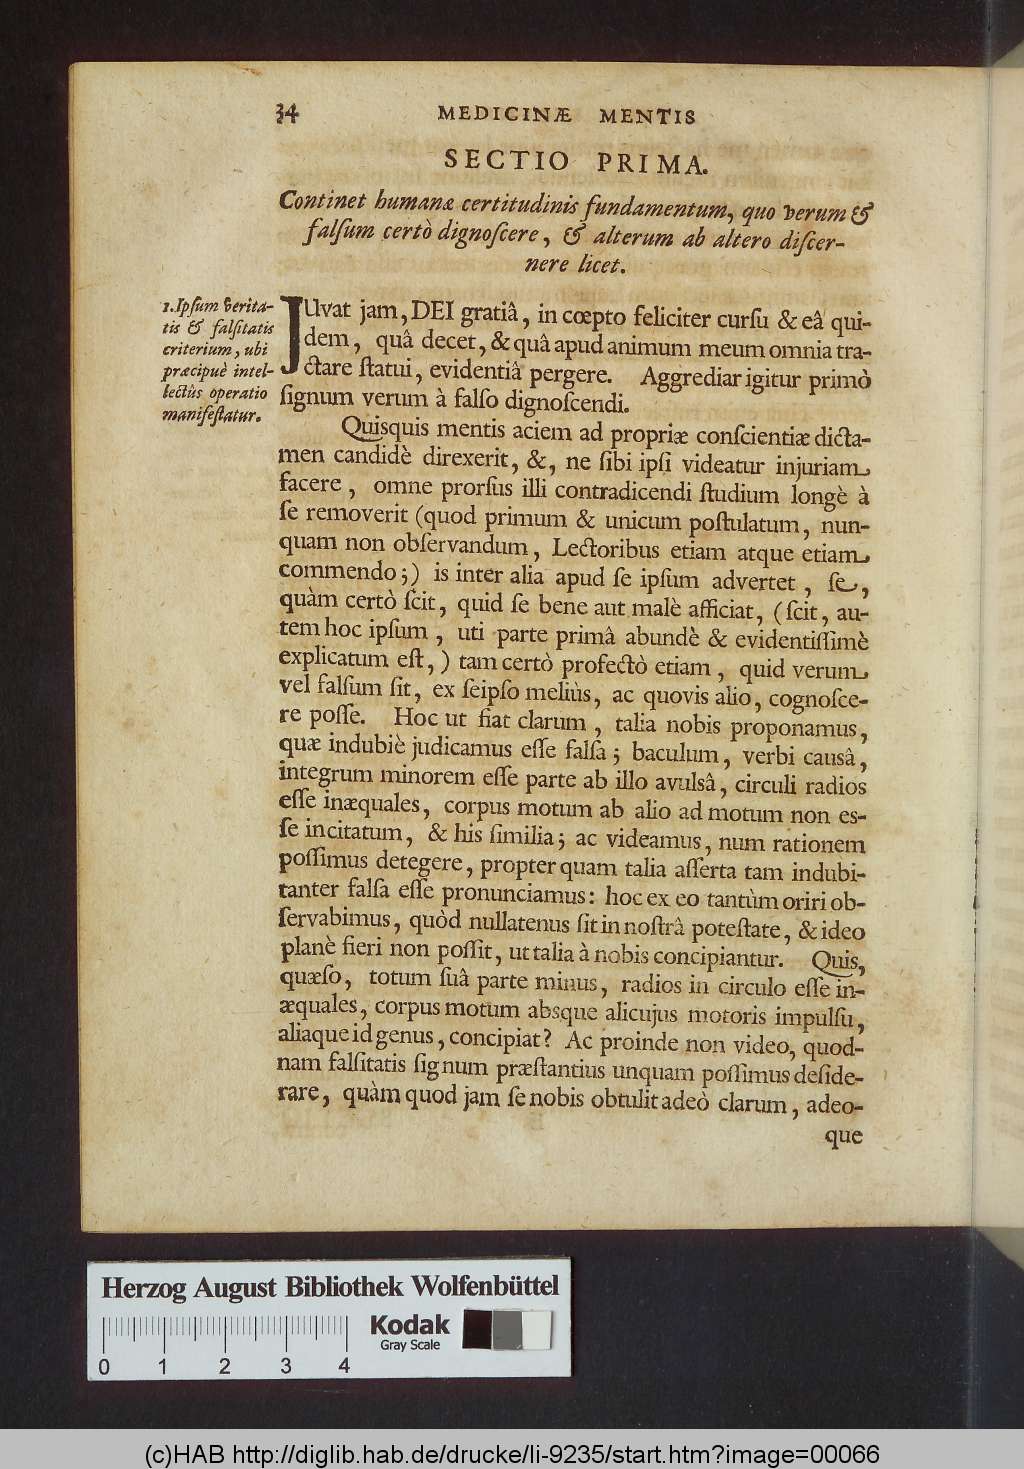 34 MEDICINÆ MENTIS
SECTIO PRIMA.
Continet humanæ certitudinis fundamentum, quo verum &
falſum certò dignoſcere, & alterum ab altero diſcer-
nere licet.
1. Ipſum verita-
tis & falſitatis
criterium, ubi
præcipuè intel-
lectùs operatio
manifeſtatur.
JUvat jam, DEI gratiâ, in cœpto feliciter curſu & eâ qui-
dem, quâ decet, & quâ apud animum meum omnia tra-
ctare ſtatui, evidentiâ pergere. Aggrediar igitur primò
ſignum verum à falſo dignoſcendi.
Quisquis mentis aciem ad propriæ conſcientiæ dicta-
men candidè direxerit, &, ne ſibi ipſi videatur injuriam
facere, omne prorſus illi contradicendi ſtudium longè à
ſe removerit (quod primum & unicum poſtulatum, nun-
quam non obſervandum, Lectoribus etiam atque etiam
commendo;) is inter alia apud ſe ipſum advertet, ſe,
quàm certò ſcit, quid ſe bene aut malè afficiat, (ſcit, au-
tem hoc ipſum, uti parte primâ abundè & evidentiſſimè
explicatum eſt,) tam certò profectò etiam, quid verum
vel falſum ſit, ex ſeipſo meliùs, ac quovis alio, cognoſce-
re poſſe. Hoc ut fiat clarum, talia nobis proponamus,
quæ indubiè judicamus eſſe falſa; baculum, verbi causâ,
integrum minorem eſſe parte ab illo avulsâ, circuli radios
eſſe inæquales, corpus motum ab alio ad motum non es-
ſe incitatum, & his ſimilia; ac videamus, num rationem
poſſimus detegere, propter quam talia aſſerta tam indubi-
tanter falſa eſſe pronunciamus: hoc ex eo tantùm oriri ob-
ſervabimus, quòd nullatenus ſit in noſtrâ poteſtate, & ideo
planè fieri non poſſit, ut talia à nobis concipiantur. Quis,
quæſo, totum ſuâ parte minus, radios in circulo eſſe in-
æquales, corpus motum absque alicujus motoris impulſu,
aliaque id genus, concipiat? Ac proinde non video, quod-
nam falſitatis ſignum præſtantius unquam poſſimus deſide-
rare, quàm quod jam ſe nobis obtulit adeò clarum, adeo-
que
Herzog August Bibliothek Wolfenbüttel
Kodak
Gray Scale
0 1 2 3 4
(c)HAB http://diglib.hab.de/drucke/li-9235/start.htm?image=00066